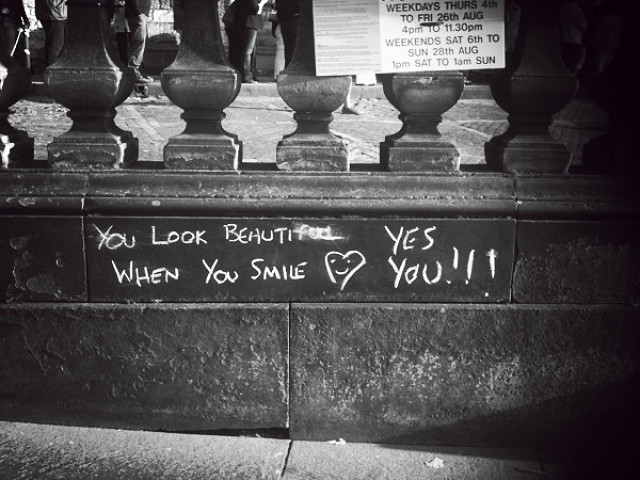 WEEKDAYS THURS 4th
TO FRI 26th AUG
4pm TO 11.30pm
WEEKENDS SAT 6th TO
SUN 28th AUG
1pm SAT TO 1am SUN
YOU LOOK BEAUTIFUL
WHEN YOU SMILE
YES
YOU!!!